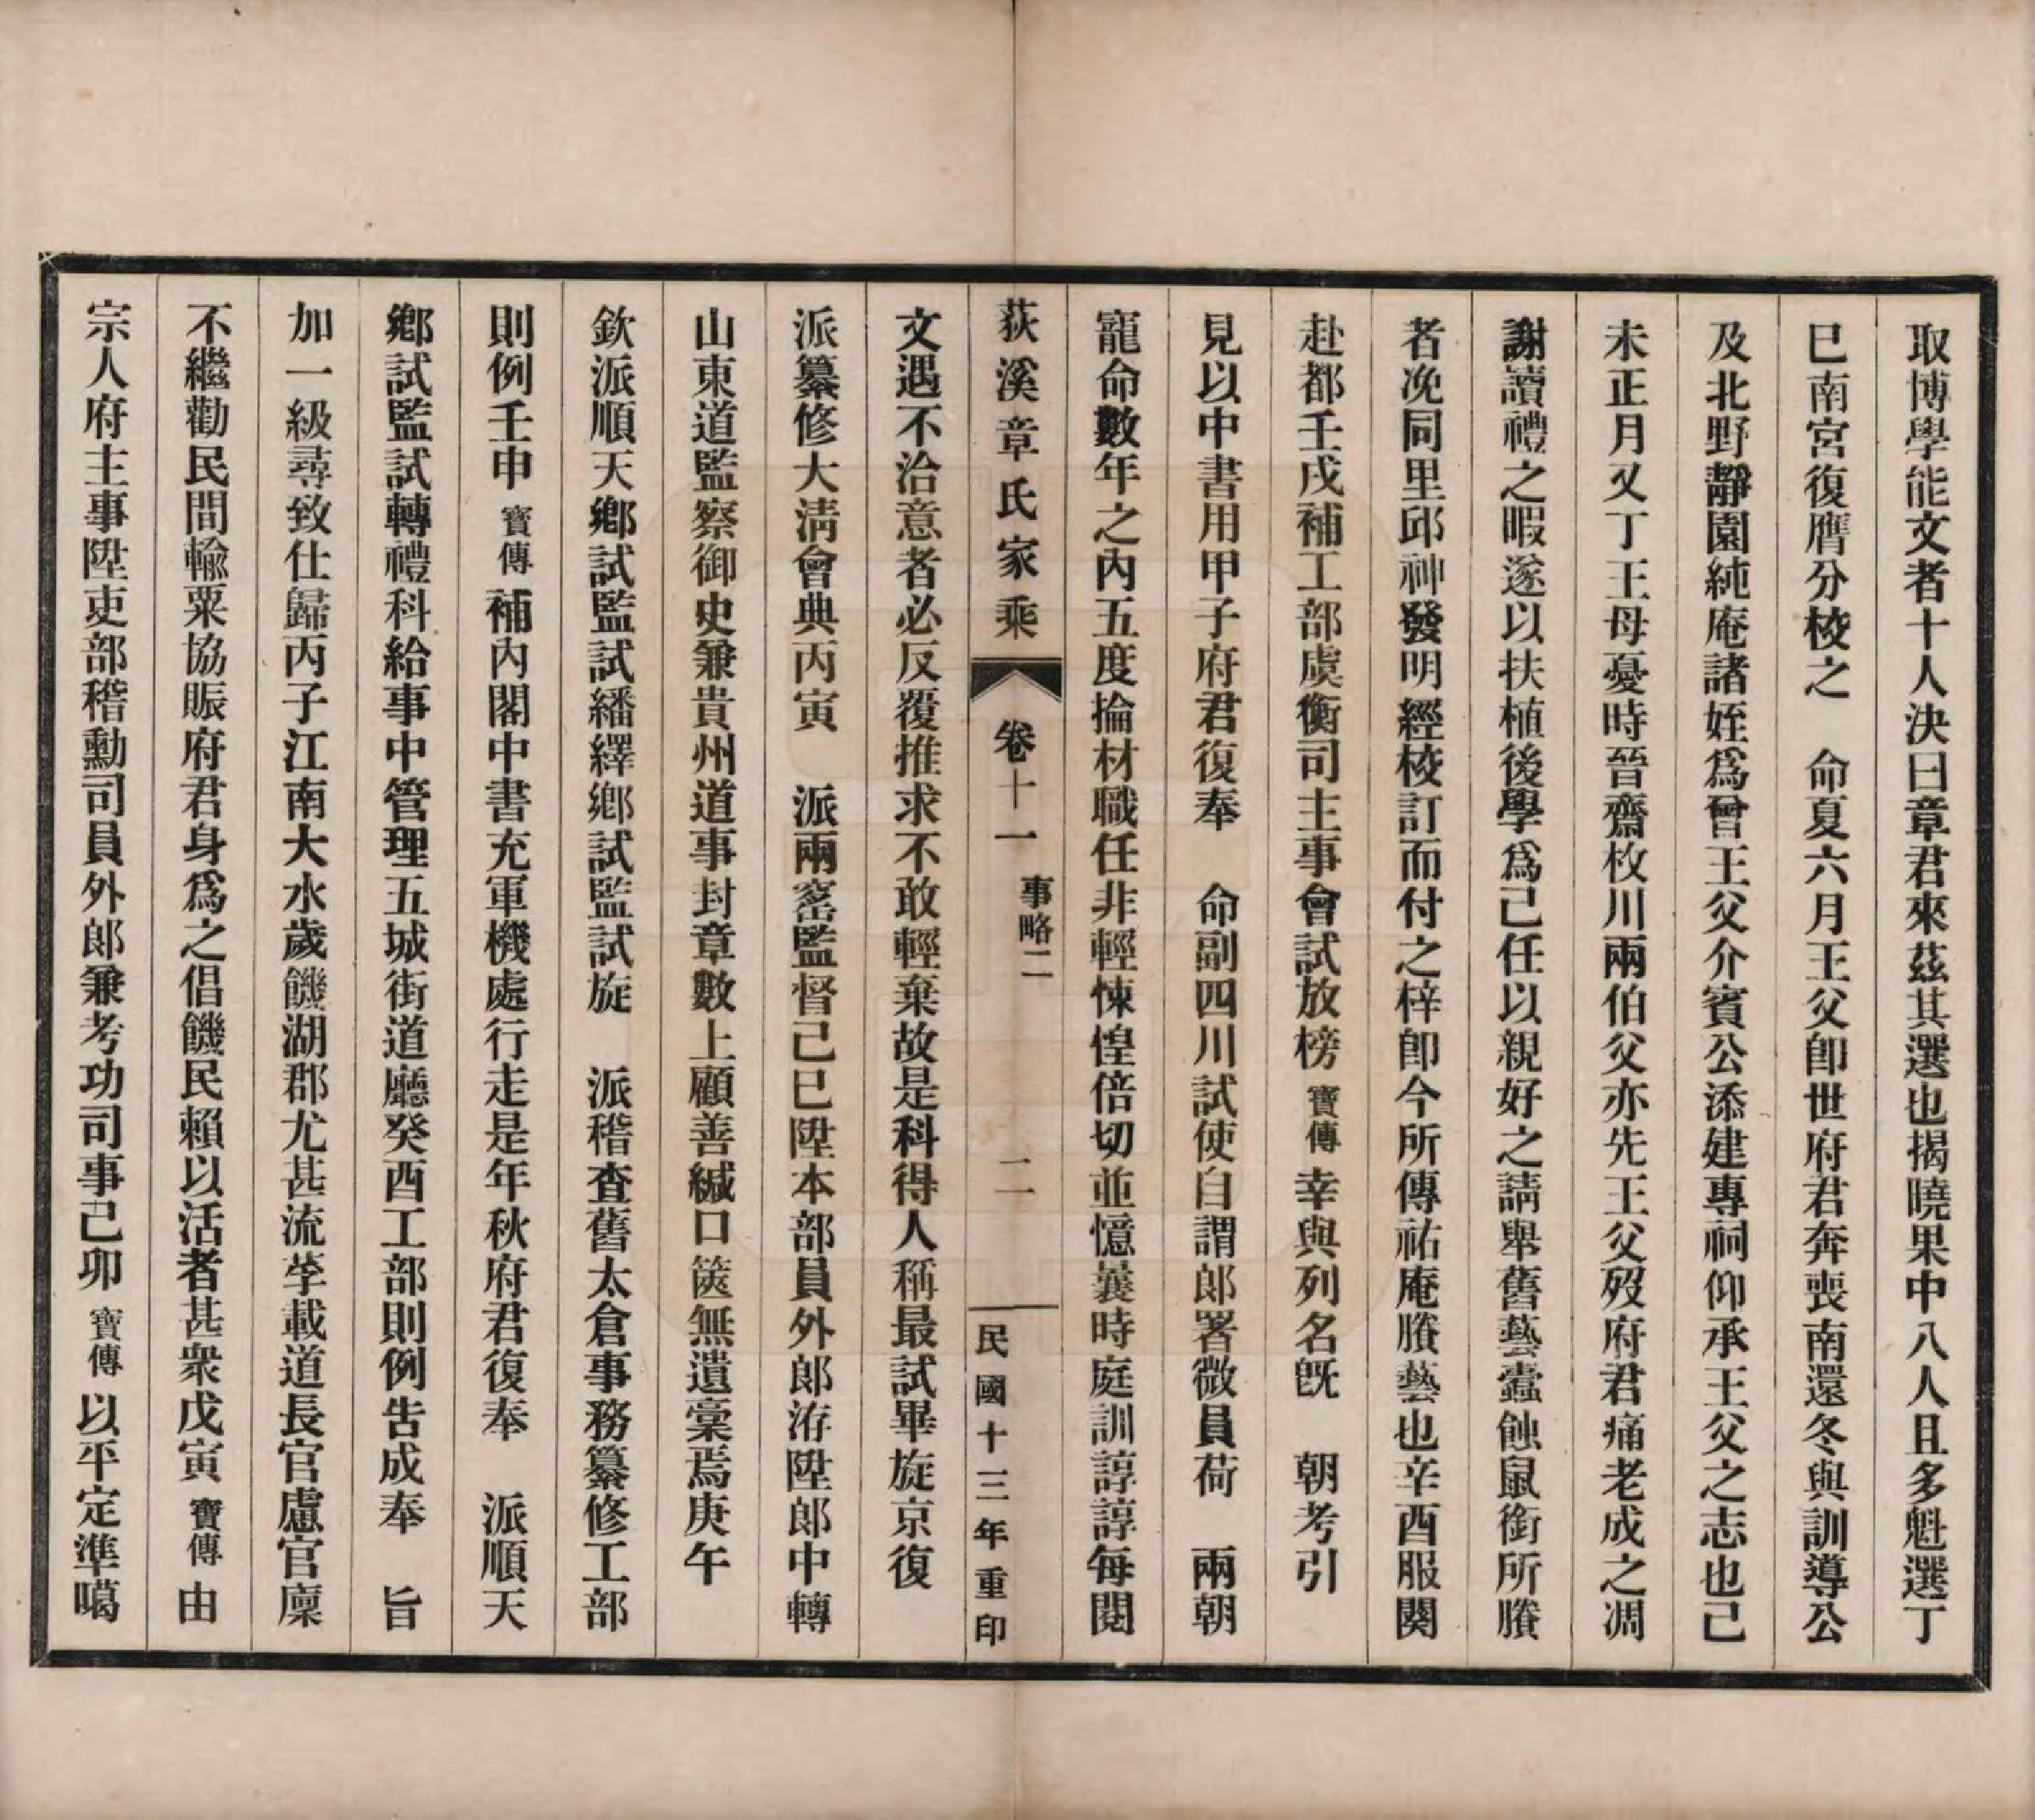 取博學能文者十人決曰章君來茲其選也揭曉果中八人且多魁選丁
巳南宮復膺分校之　命夏六月王父卽世府君奔喪南還冬與訓導公
及北野靜園純庵諸姪爲曾王父介賓公添建專祠仰承王父之志也己
未正月又丁王母憂時晉齋枚川兩伯父亦先王父歿府君痛老成之凋
謝讀禮之暇遂以扶植後學爲己任以親好之請舉舊藝蠹蝕鼠銜所賸
者浼同里邱神發明經校訂而付之梓卽今所傳祐庵賸藝也辛酉服闋
赴都壬戌補工部虞衡司主事會試放榜寶傳幸與列名旣　朝考引
見以中書用甲子府君復奉　命副四川試使自謂郎署微員荷　兩朝
寵命數年之內五度掄材職任非輕悚惶倍切並憶曩時庭訓諄諄每閱
荻溪章氏家乘　卷十一　事略二　二　民國十三年重印
文遇不洽意者必反覆推求不敢輕棄故是科得人稱最試畢旋京復
派纂修大淸會典丙寅　派兩窰監督己巳陞本部員外郎洊陞郎中轉
山東道監察御史兼貴州道事封章數上顧善緘口篋無遺稾焉庚午
欽派順天鄕試監試繙繹鄕試監試旋　派稽査舊太倉事務纂修工部
則例壬申寶傳補內閣中書充軍機處行走是年秋府君復奉　派順天
鄕試監試轉禮科給事中管理五城街道廳癸酉工部則例告成奉　旨
加一級尋致仕歸丙子江南大水歲饑湖郡尤甚流莩載道長官慮官廩
不繼勸民間輸粟協賑府君身爲之倡饑民賴以活者甚衆戊寅寶傳由
宗人府主事陞吏部稽勳司員外郎兼考功司事己卯寶傳以平定準噶